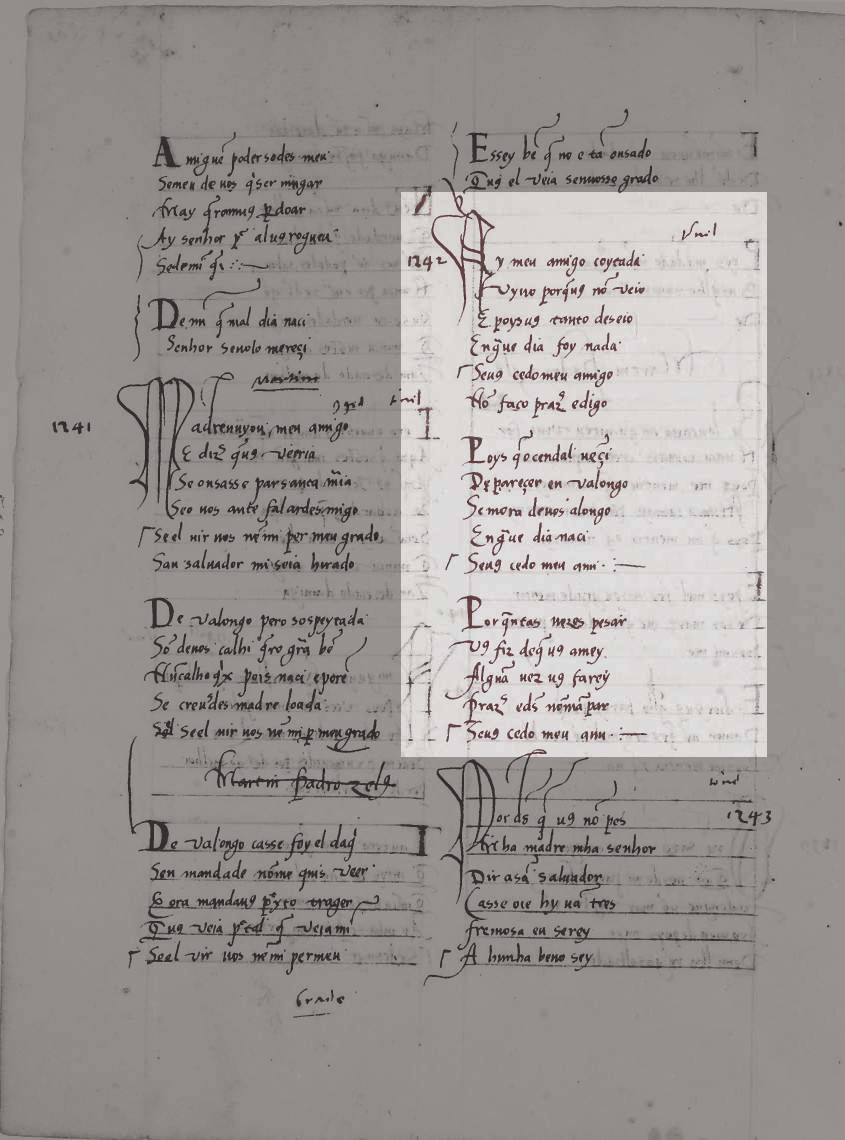 Amigue poder sodes meu
Semeu de uos q̃ser mingar
May q̃romug p̲doar
Ay senhor p̃ alug rogueu
Selemi q̃
De mi q̃ mal dia naci
Senhor senolo mereçi
martim
ynil
1241
Madre uuyou meu amigo
E diz̃ q̃ug veeria
Se ousasse par sanca mĩa
Seo uos ante falardes migo
Se el uir uos nẽ mi per meu grado
San saluador mi seia hirado
De valongo pero sospeytada
Sõ de uos calhi q̃ro grã bẽ
pois naci e porẽ
Se creu̾des madre loada
Se el uir uos nẽ mi p̲ meu grado
Martin Padrozelg
De valongo casse foy el daq̃
Sen mandade nõme quis veer
E ora mandaug p̃yto trager
Que veia p̃ tal q̃ veiami
Se el vir uos nẽ mi per meu
Grade
E ssey bẽ q̃ no e tã ousado
Que el veia sen uosso grado
ynil
1242
Ay meu amigo coytada
Vyuo porq̃ug nõ veio
E poys ug tanto deseio
En g̃ue dia foy nada
Seug cedo meu amigo
Nõ faco praz̃ e digo
Poys q̃ o cendal uẽçi
De pareçer en valongo
Se mora de uos alongo
En g̃ue dia naci
Seug cedo meu ami
Por q̃ntas uezes pesar
Vg fiz deq̃ ug amey
Algũa uez ug farey
Praz̃ e ds̃ nõ mãpare
Seug cedo meu ami
ynil
1243
Por ds̃ q̃ ug nõ pes
Mha madre mha senhor
Dir a sã saluador
Casse oie hy uã tres
Fremosa eu serey
A hunha beno sey